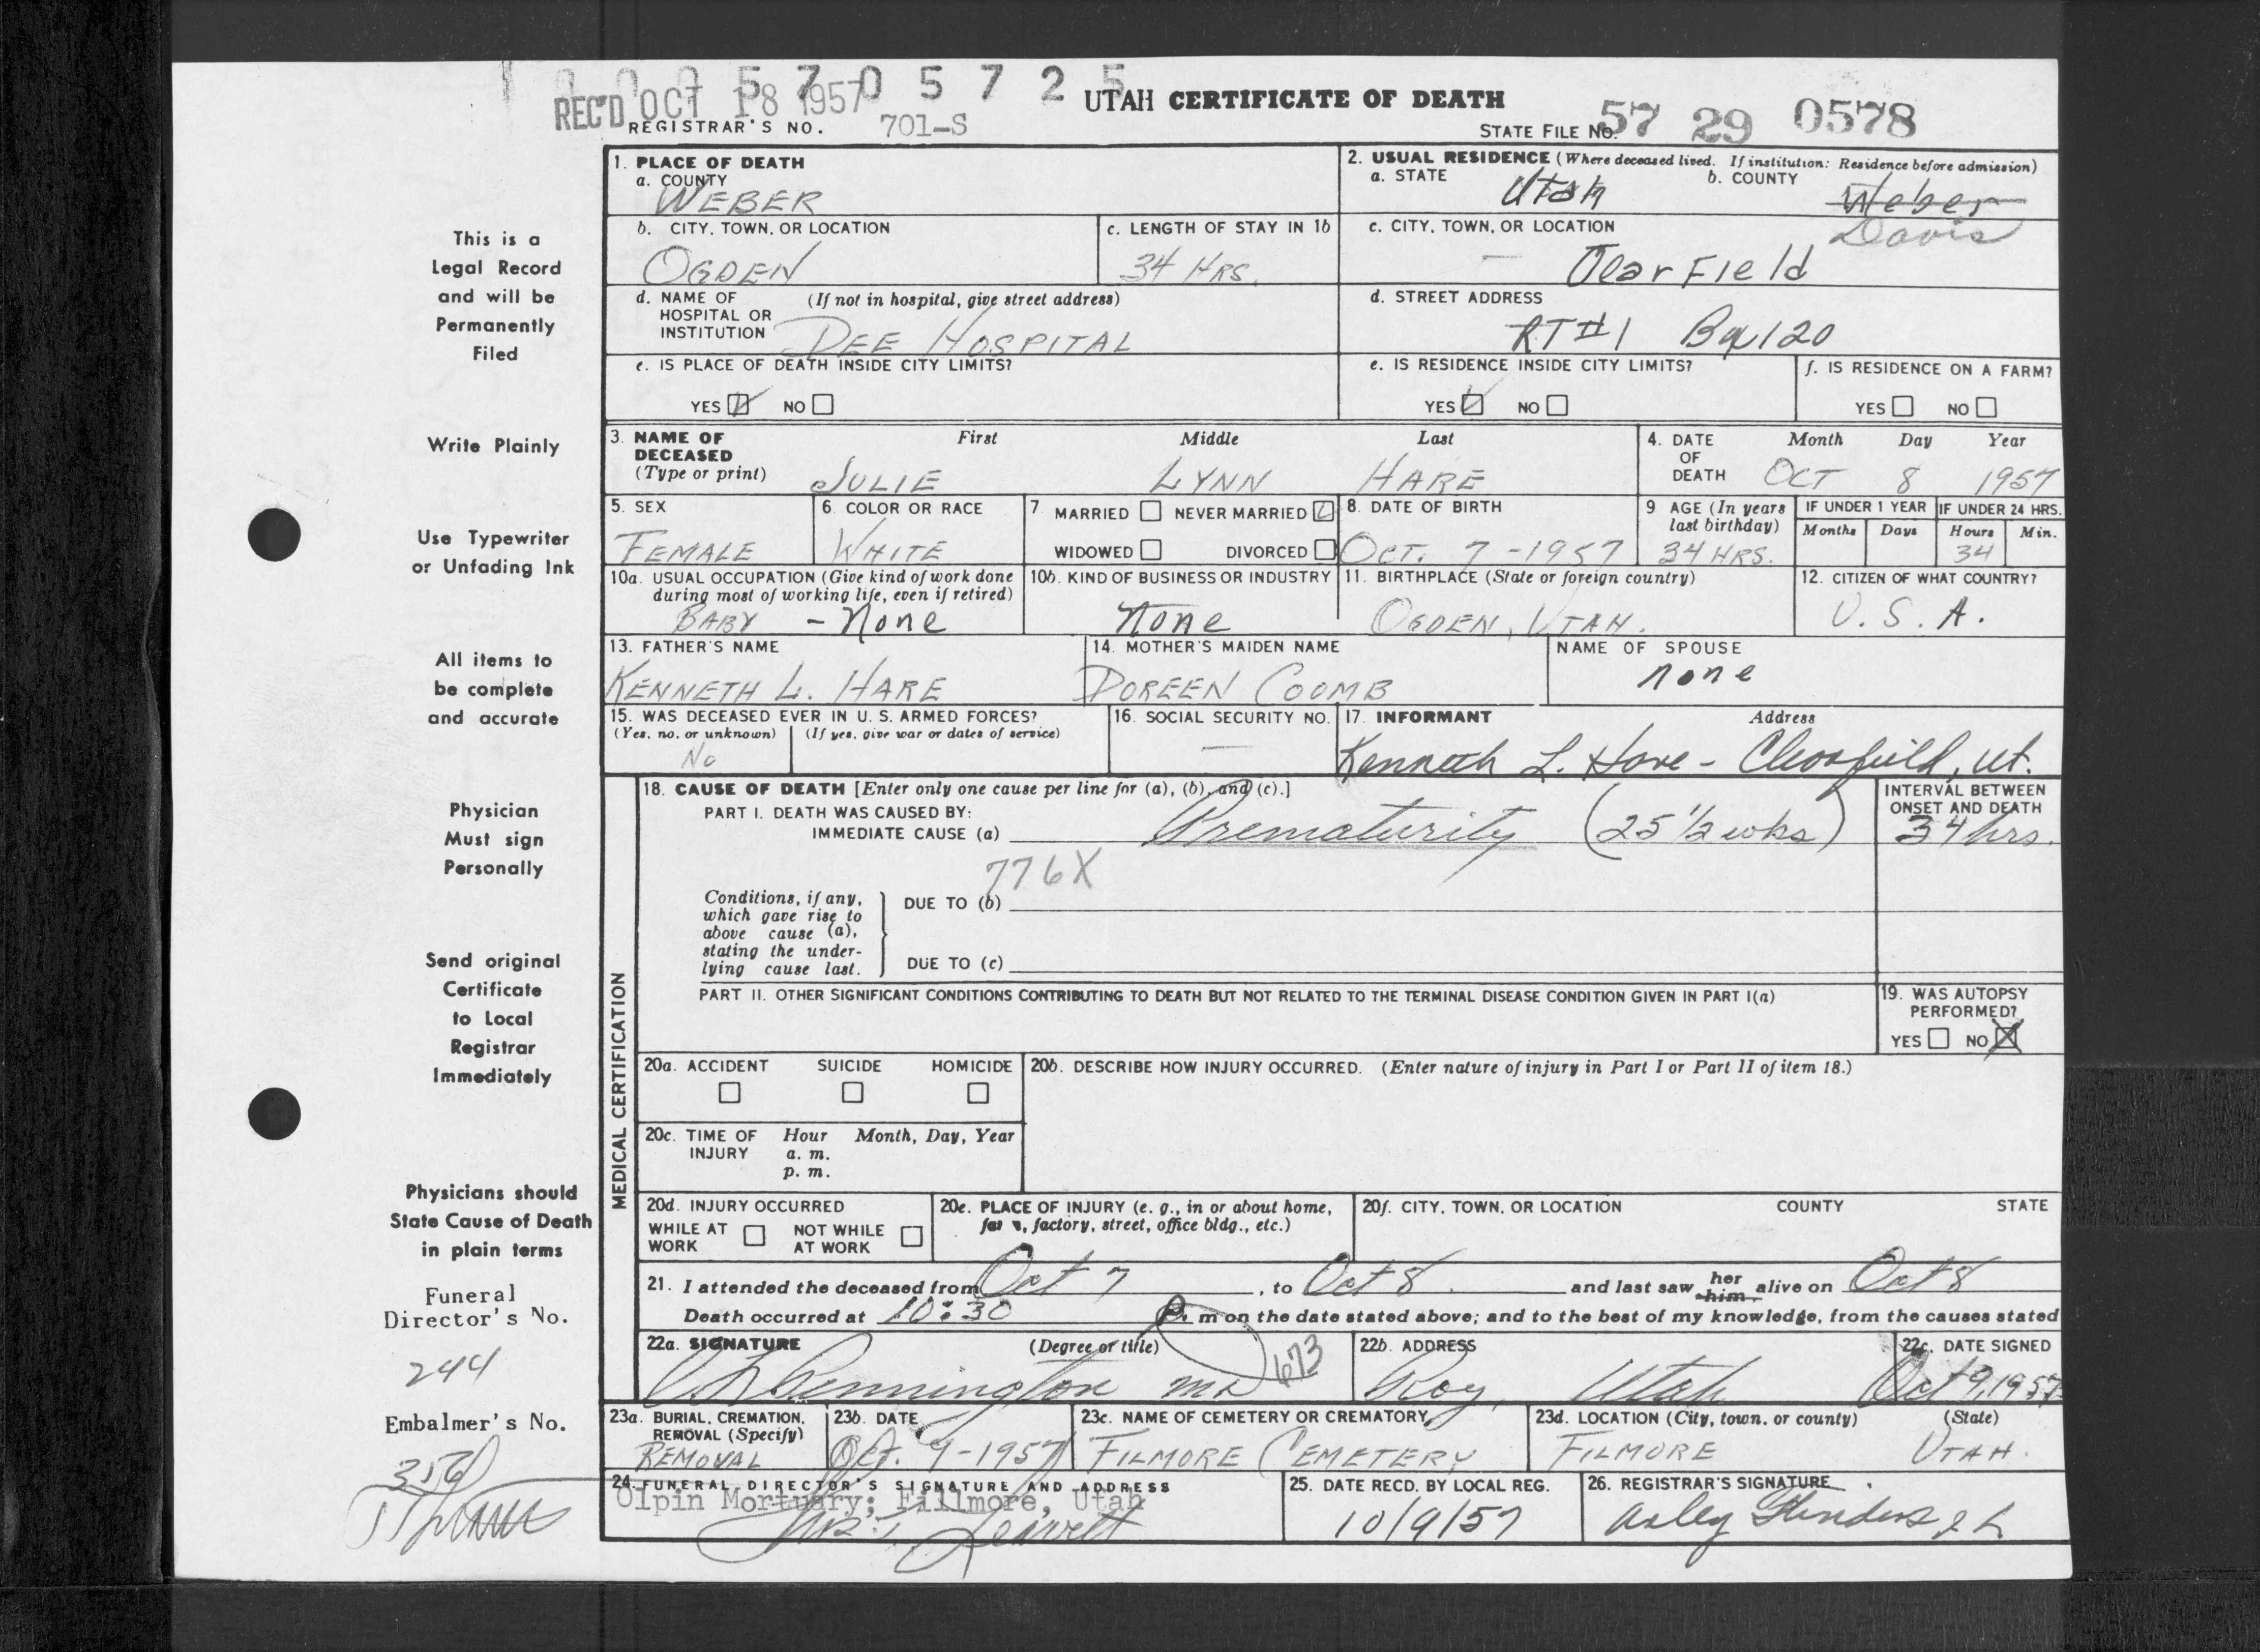 1 0 0 5 7 0 5 7 2 5
REC'D OCT 18 1957
UTAH CERTIFICATE OF DEATH
REGISTRAR'S NO. 701-S
STATE FILE NO. 57 29 0578
This is a
Legal Record
and will be
Permanently
Filed
Write Plainly
Use Typewriter
or Unfading Ink
All items to
be complete
and accurate
Physician
Must sign
Personally
Send original
Certificate
to Local
Registrar
Immediately
Physicians should
State Cause of Death
in plain terms
Funeral
Director's No.
244
Embalmer's No.
356
1. PLACE OF DEATH
a. COUNTY
WEBER
2. USUAL RESIDENCE (Where deceased lived. If institution: Residence before admission)
a. STATE Utah
b. COUNTY Weber
Davis
b. CITY, TOWN, OR LOCATION
OGDEN
c. LENGTH OF STAY IN 1b
34 HRS.
c. CITY, TOWN, OR LOCATION
Clearfield
d. NAME OF (If not in hospital, give street address)
HOSPITAL OR
INSTITUTION DEE HOSPITAL
d. STREET ADDRESS
RT #1 Box 120
e. IS PLACE OF DEATH INSIDE CITY LIMITS?
YES NO
e. IS RESIDENCE INSIDE CITY LIMITS?
YES NO
f. IS RESIDENCE ON A FARM?
YES NO
3. NAME OF DECEASED (Type or print)
First Middle Last
JULIE LYNN HARE
4. DATE OF DEATH
Month Day Year
OCT 8 1957
5. SEX
FEMALE
6. COLOR OR RACE
WHITE
7 MARRIED NEVER MARRIED
WIDOWED DIVORCED
8. DATE OF BIRTH
OCT. 7-1957
9 AGE (In years last birthday)
34 HRS.
IF UNDER 1 YEAR
Months Days
IF UNDER 24 HRS.
Hours Min.
34
10a. USUAL OCCUPATION (Give kind of work done
during most of working life, even if retired)
BABY - None
10b. KIND OF BUSINESS OR INDUSTRY
None
11. BIRTHPLACE (State or foreign country)
OGDEN, UTAH.
12. CITIZEN OF WHAT COUNTRY?
U.S.A.
13. FATHER'S NAME
KENNETH L. HARE
14. MOTHER'S MAIDEN NAME
DOREEN COOMB
NAME OF SPOUSE
none
15. WAS DECEASED EVER IN U. S. ARMED FORCES?
(Yes, no, or unknown) (If yes, give war or dates of service)
No
16. SOCIAL SECURITY NO.
17. INFORMANT Address
Kenneth L. Hare - Clearfield, Ut.
MEDICAL CERTIFICATION
18. CAUSE OF DEATH [Enter only one cause per line for (a), (b), and (c).]
PART I. DEATH WAS CAUSED BY:
IMMEDIATE CAUSE (a) Prematurity (25 1/2 wks)
INTERVAL BETWEEN
ONSET AND DEATH
34 hrs.
776X
Conditions, if any,
which gave rise to
above cause (a),
stating the under-
lying cause last.
DUE TO (b)
DUE TO (c)
PART II. OTHER SIGNIFICANT CONDITIONS CONTRIBUTING TO DEATH BUT NOT RELATED TO THE TERMINAL DISEASE CONDITION GIVEN IN PART I(a)
19. WAS AUTOPSY
PERFORMED?
YES NO
20a. ACCIDENT SUICIDE HOMICIDE
20b. DESCRIBE HOW INJURY OCCURRED. (Enter nature of injury in Part I or Part II of item 18.)
20c. TIME OF INJURY
Hour Month, Day, Year
a. m.
p. m.
20d. INJURY OCCURRED
WHILE AT WORK NOT WHILE AT WORK
20e. PLACE OF INJURY (e. g., in or about home,
factory, street, office bldg., etc.)
20f. CITY, TOWN, OR LOCATION COUNTY STATE
21. I attended the deceased from Oct 7, to Oct 8 and last saw her him alive on Oct 8
Death occurred at 10:30 P. m on the date stated above; and to the best of my knowledge, from the causes stated
22a. SIGNATURE (Degree or title)
Pennington MD
673
22b. ADDRESS
Roy, Utah
22c. DATE SIGNED
Oct 9, 1957
23a. BURIAL, CREMATION,
REMOVAL (Specify)
REMOVAL
23b. DATE
Oct. 9-1957
23c. NAME OF CEMETERY OR CREMATORY
FILMORE CEMETERY
23d. LOCATION (City, town, or county) (State)
FILMORE UTAH.
24. FUNERAL DIRECTOR'S SIGNATURE AND ADDRESS
Olpin Mortuary; Fillmore, Utah
25. DATE RECD. BY LOCAL REG.
10/9/57
26. REGISTRAR'S SIGNATURE